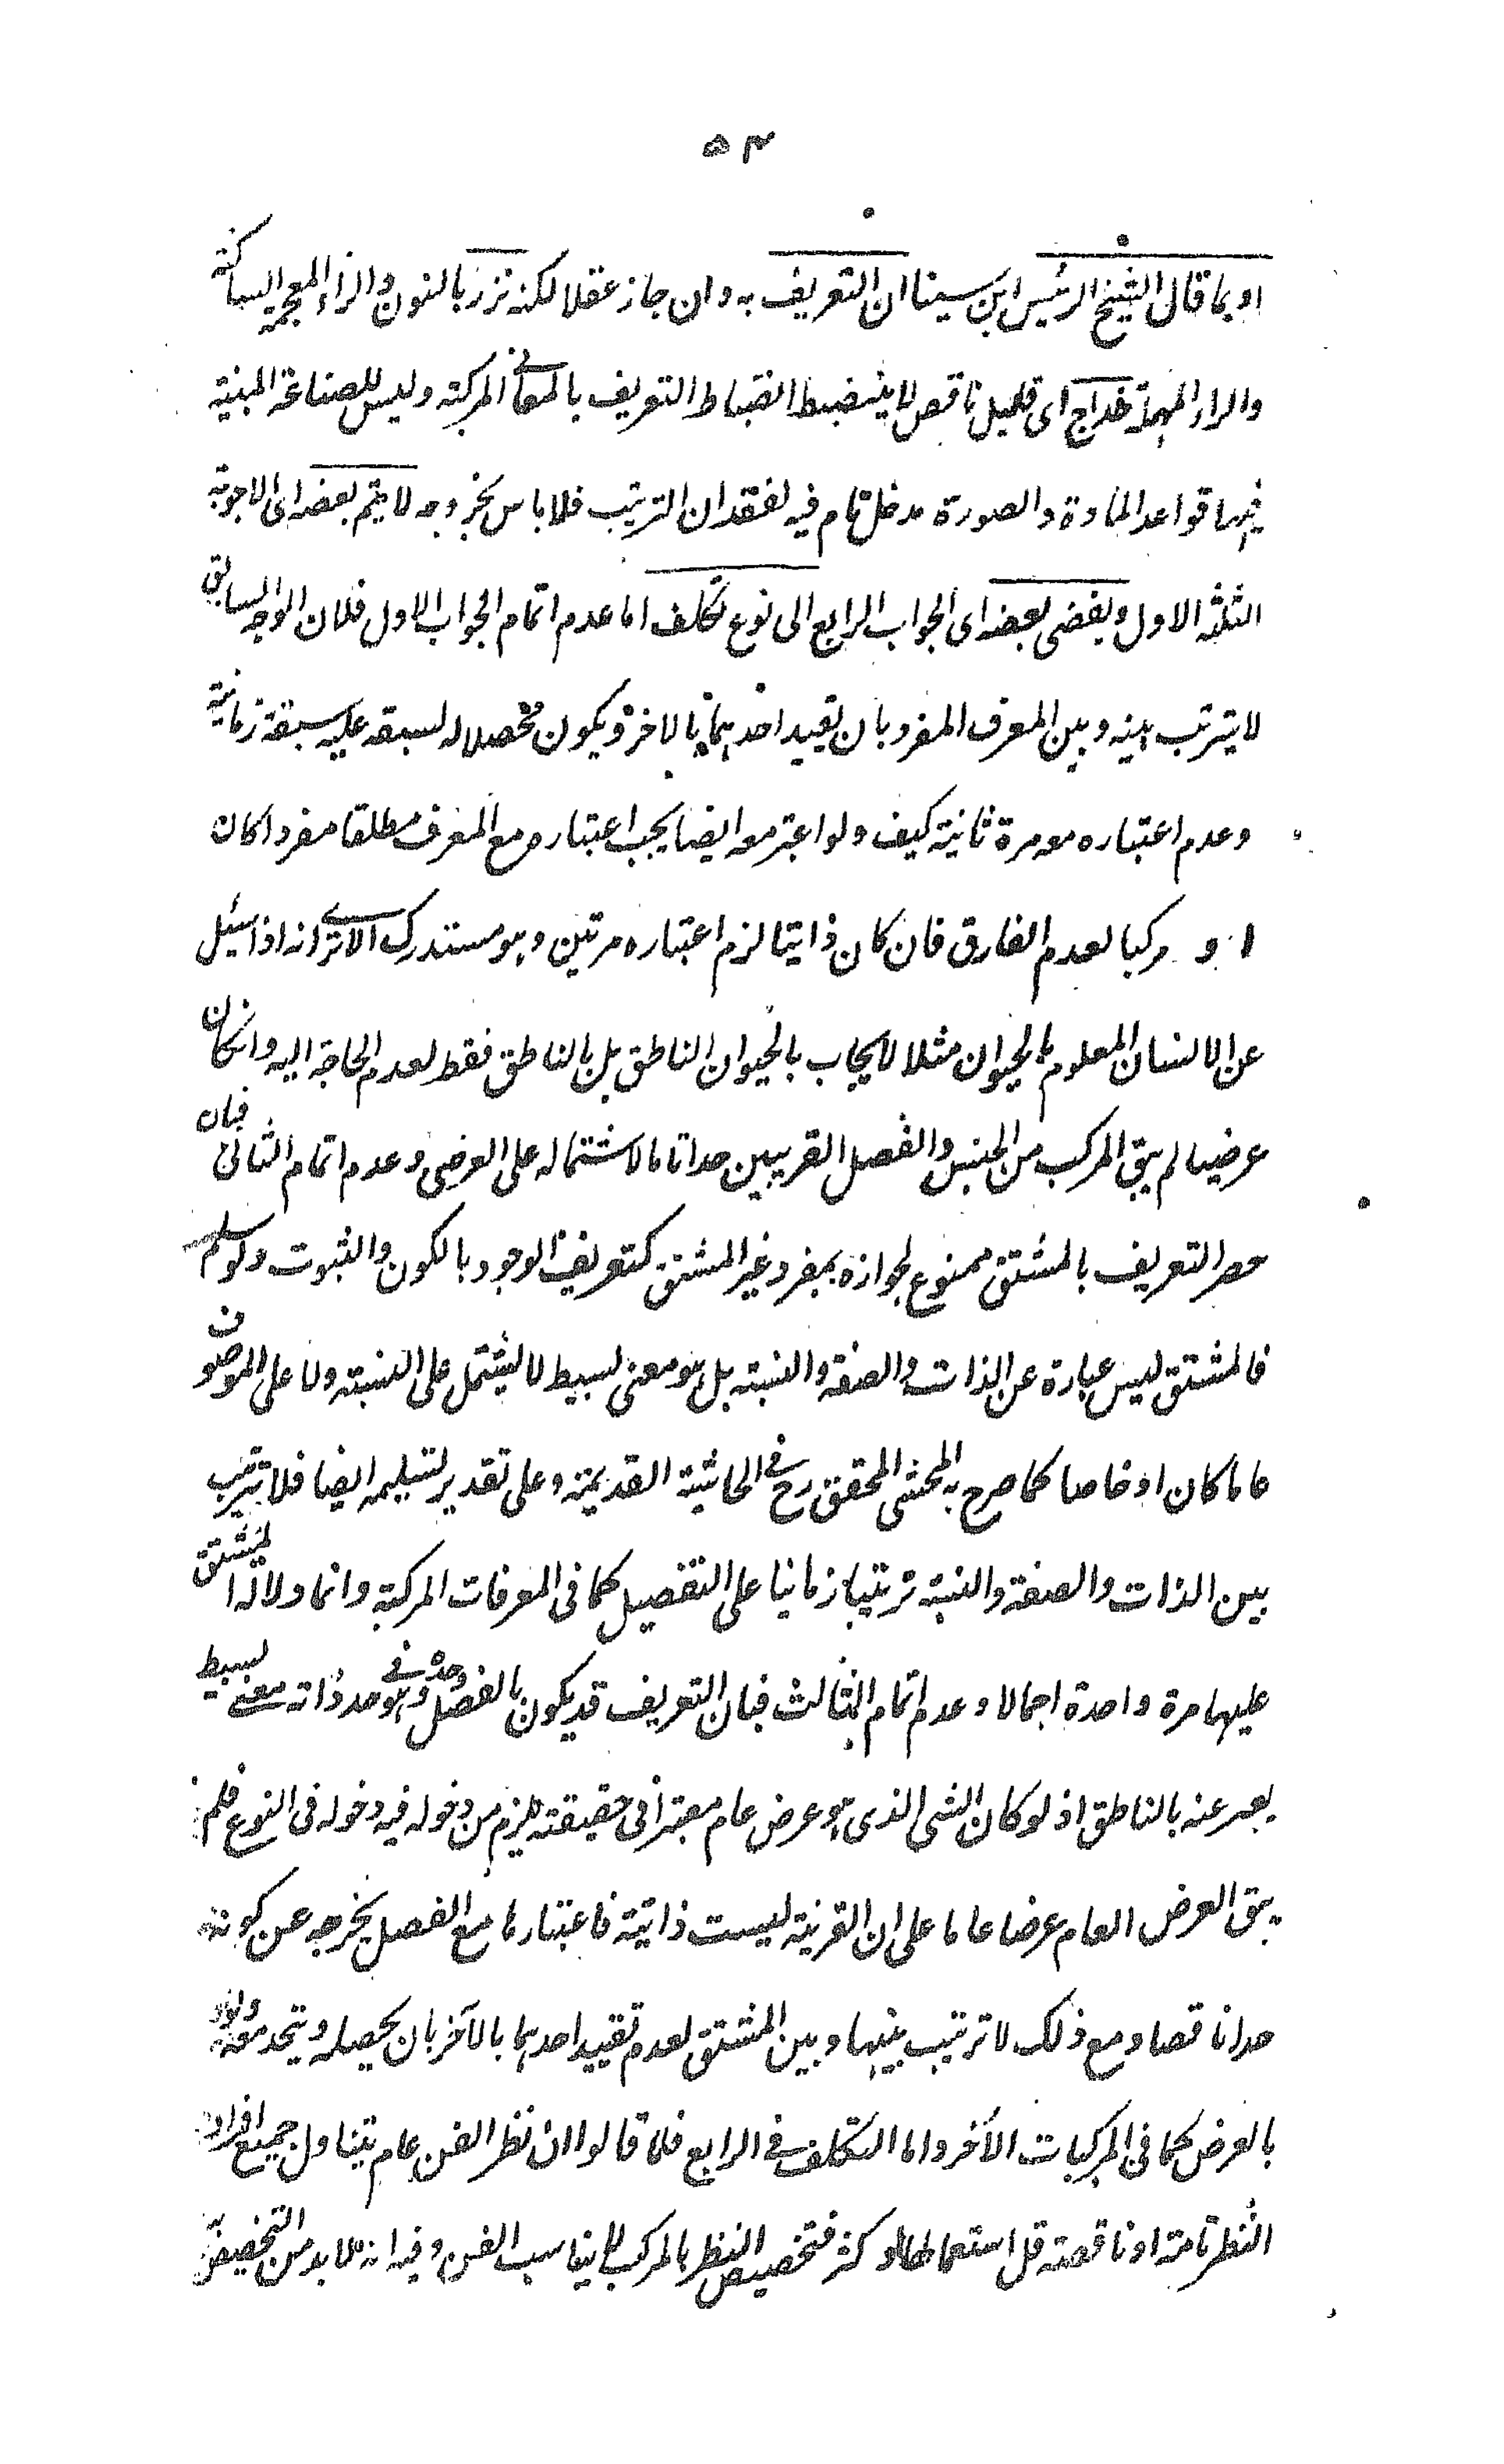 ۵۴
او بما قال الشيخ الرئيس ابن سينا ان التعريف به وان جاز عقلا لكنه نزر بالنون والزاء المعجمة الساكنة
والراء المهملة خداج اى قليل ناقص لا ينضبط انضباط التعريف بالمعانى المركبة وليس للصناعة المبنية
فيها قواعد المادة والصورة مدخل تام فيه لفقدان الترتيب فلا باس بخروجه لا يتم بعضه اى الاجوبة
الثلثة الاول ويفضى بعضه اى الجواب الرابع الى نوع تكلف اما عدم اتمام الجواب الاول فلان الوجه السابق
لا يترتب بينه وبين المعرف المفرد بان يقيد احدهما بالاخر ويكون محصلا له لسبقه عليه سبقة زمانية
وعدم اعتباره معه مرة ثانية كيف ولو اعتبر معه ايضا يجب اعتباره مع المعرف مطلقا مفردا كان
او مركبا لعدم الفارق فان كان ذاتيا لزم اعتباره مرتين وهو مستدرك الا ترى انه اذا سئل
عن الانسان المعلوم بالحيوان مثلا لا يجاب بالحيوان الناطق بل بالناطق فقط لعدم الحاجة اليه وان كان
عرضيا لم يبق المركب من الجنس والفصل القريبين حدا تاما لاشتماله على العرضى وعدم اتمام الثانى فبان
حصر التعريف بالمشتق ممنوع لجوازه بمفرد غير المشتق كتعريف الوجود بالكون والثبوت ولو سلم
فالمشتق ليس عبارة عن الذات والصفة والنسبة بل هو معنى بسيط لا يشتمل على النسبة ولا على الموصوف
عاما كان او خاصا كما صرح به المحشى المحقق رح فى الحاشية القديمة وعلى تقدير تسليمه ايضا فلا ترتيب
بين الذات والصفة والنسبة ترتيبا زمانيا على التفصيل كما فى المعرفات المركبة وانما دلالة المشتق
عليها مرة واحدة اجمالا وعدم اتمام الثالث فبان التعريف قد يكون بالفصل وحده وهو فى حد ذاته معنى بسيط
يعبر عنه بالناطق اذ لو كان الشى الذى هو عرض عام معتبرا فى حقيقته يلزم من دخوله فيه دخوله فى النوع فلم
يبق العرض العام عرضا عاما على ان القرينة ليست ذاتية فاعتبارها مع الفصل يخرجه عن كونه
حدا ناقصا ومع ذلك لا ترتيب بينها وبين المشتق لعدم تقييد احدهما بالآخر بان يحصله ويتحد معه ولو
بالعرض كما فى المركبات الأخر واما التكلف فى الرابع فلما قالوا ان نظر الفن عام يتناول جميع افراد
النظر تامة او ناقصة قل استعمالها او كثر فتخصيص النظر بالمركب لا يناسب الفن وفيه انه لا بد من التخصيص